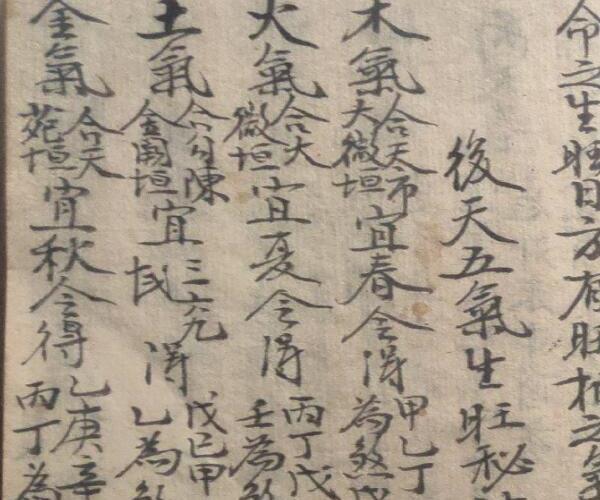 命之生旺日方有旺相之氣
後天五氣生旺秘
木氣合天市大微垣宜春令得甲乙丁為煞
火氣合大微垣宜夏令得丙丁戊壬為煞
土氣合勾陳金闕垣宜三六九得戊已甲乙為煞
金氣合天苑垣宜秋令得乙庚辛丙丁為